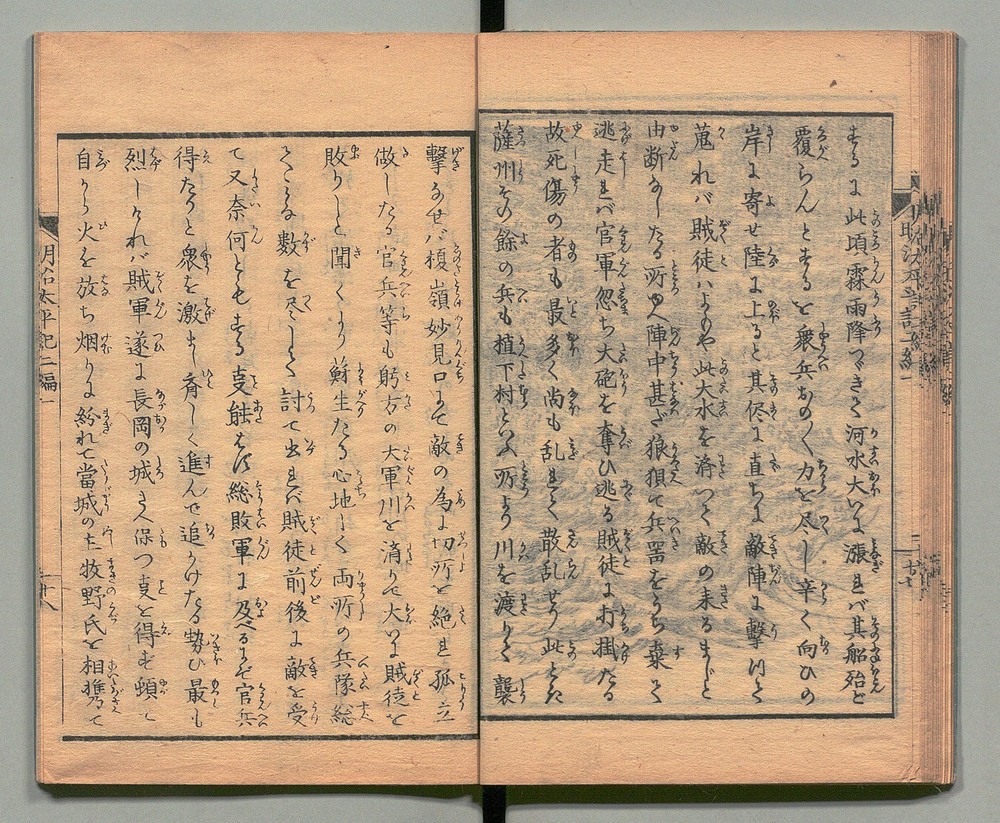 まるに此頃霖雨降つゞきて河水大いに漲れバ其船殆ど
覆らんとするを衆兵おの〱力を尽し辛く向ひの
岸に寄せ陸に上ると其侭に直ちに敵陣に撃りて
蒐れバ賊徒ハよもや此大水を済つて敵の来るまじと
由断なしたる所ゆゑ陣中甚だ狼狽て兵器をうち棄て
逃走れバ官軍忽ち大砲を奪ひ逃る賊徒に打掛たる
故死傷の者も最多く尚も乱れて散乱せり此とき
薩州その餘の兵も植下村といふ所より川を渡りて襲
撃なせバ榎嶺妙見口まで敵の為に切所を絶れ孤立
做したる官兵等も躬方の大軍川を済りて大に賊徒を
敗りしと聞くより蘇生たる心地して両所の兵隊総
て又奈何ともする事能はず総敗軍に及べるまで官兵
得たりと衆を激まし斉しく進んで追かけたる勢ひ最も
烈しけれバ賊軍遂に長岡の城さへ保つ事を得ず頓て
自から火を放ち烟りに紛れて當城の主牧野氏を相携へて
明治太平記二編